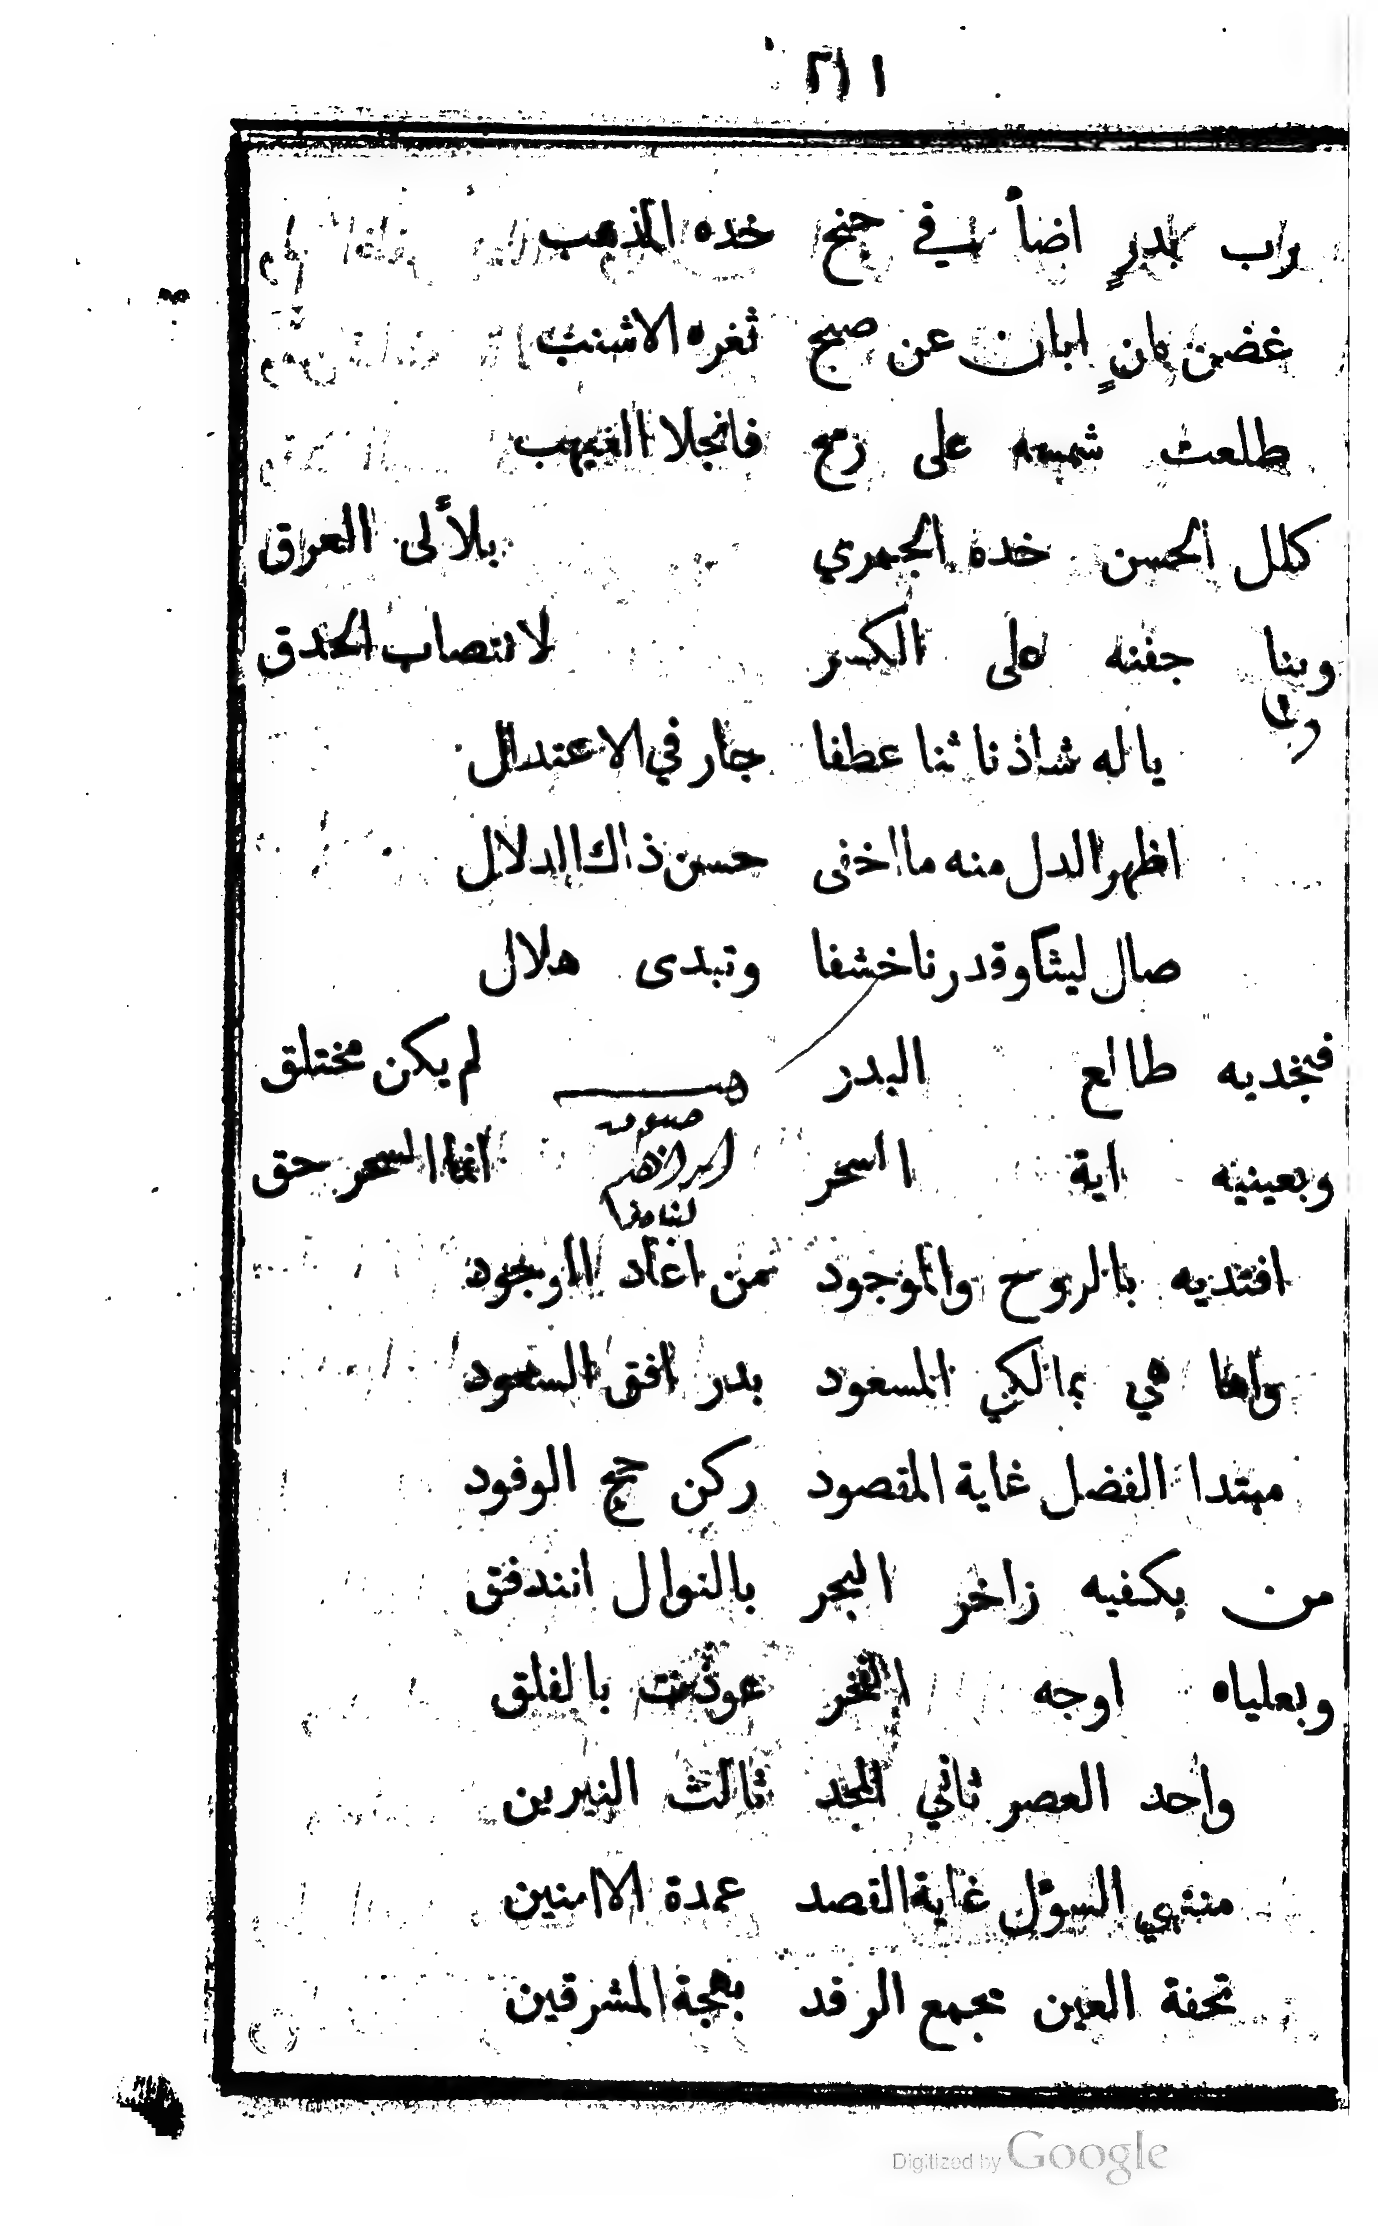 ٢١١
راب بدرٍ اضاً في جنح خده المذهب
غضن بانٍ ابان عن صبح ثغره الاشنب
طلعت شمسه على رمح فانجلا الغيهب
كلل الحسن خده الجمري بلألى العراق
وبنا جفنه على الكسر لانتصاب الحدق
ياله شاذنا ثنا عطفا جار في الاعتدال
اظهر الدل منه ما اخفى حسن ذاك الدلال
صال ليثا وقد رنا خشفا وتبدى هلال
فبخديه طالع البدر لم يكن مختلق
وبعينيه اية السحر انما السحر حق
افتديه بالروح والموجود من اعاد الوجود
واها هي بمالكي المسعود بدر افق السعود
مبتدا الفضل غاية المقصود ركن حج الوفود
من بكفيه زاخر البحر بالنوال اندفق
وبعلياه اوجه الفخر عوذت بالفلق
واحد العصر ثاني المجد ثالث النيرين
منتهي السؤل غاية القصد عمدة الامنين
تحفة العين مجمع الرفد بهجة المشرقين
Digitized by Google